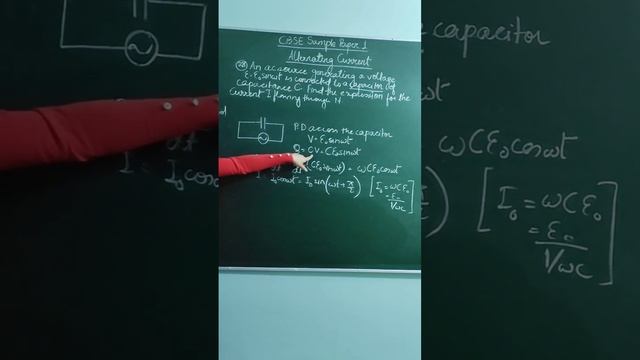 CBSE Sample Paper 1
Alternating Current
28) An ac source generating a voltage
E = E₀ sin ωt is connected to a capacitor of
Capacitance C. Find the expression for the
Current I flowing through it.
P.D across the capacitor
V = E₀ sin ωt
Q = CV = CE₀ sin ωt
(CE₀ sin ωt) = ωCE₀ cos ωt
I₀ cos ωt = I₀ sin(ωt + π/2) [I₀ = ωCE₀
= E₀
1/ωC]